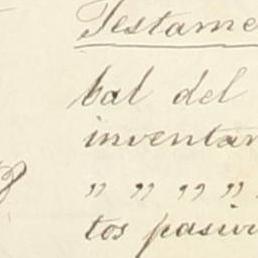 Testame
bal del
inventar
" " " "
tos pasiv